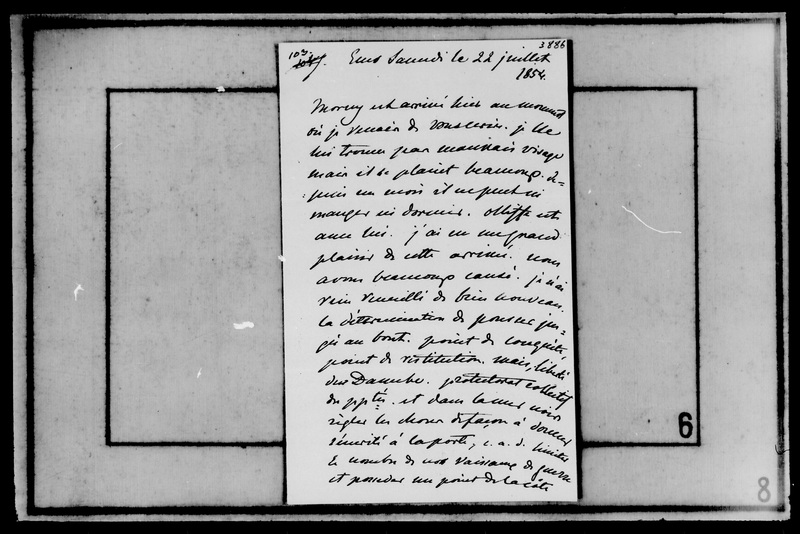 3886
103.
Ems Samedi le 22 juillet
1854.
Morny est arrivé hier au moment
où je venais de vous écrire. je ne
lui trouve pas mauvais visage
mais il se plaint beaucoup. de-
puis un mois il ne peut ni
manger ni dormir. Olliffe est
avec lui. j'ai eu un grand
plaisir de cette arrivée. nous
avons beaucoup causé. je n'ai
rien recueilli de bien nouveau.
la détermination de pousser jus-
qu'au bout. point de conquête,
point de restitution. mais, liberté
du Danube. protectorat collectif
des pptés. et dans la mer noire
régler les choses de façon à donner
sécurité à la porte, c. a. d. limiter
le nombre de nos vaisseaux de guerre
et posséder un point de la côte
6
8